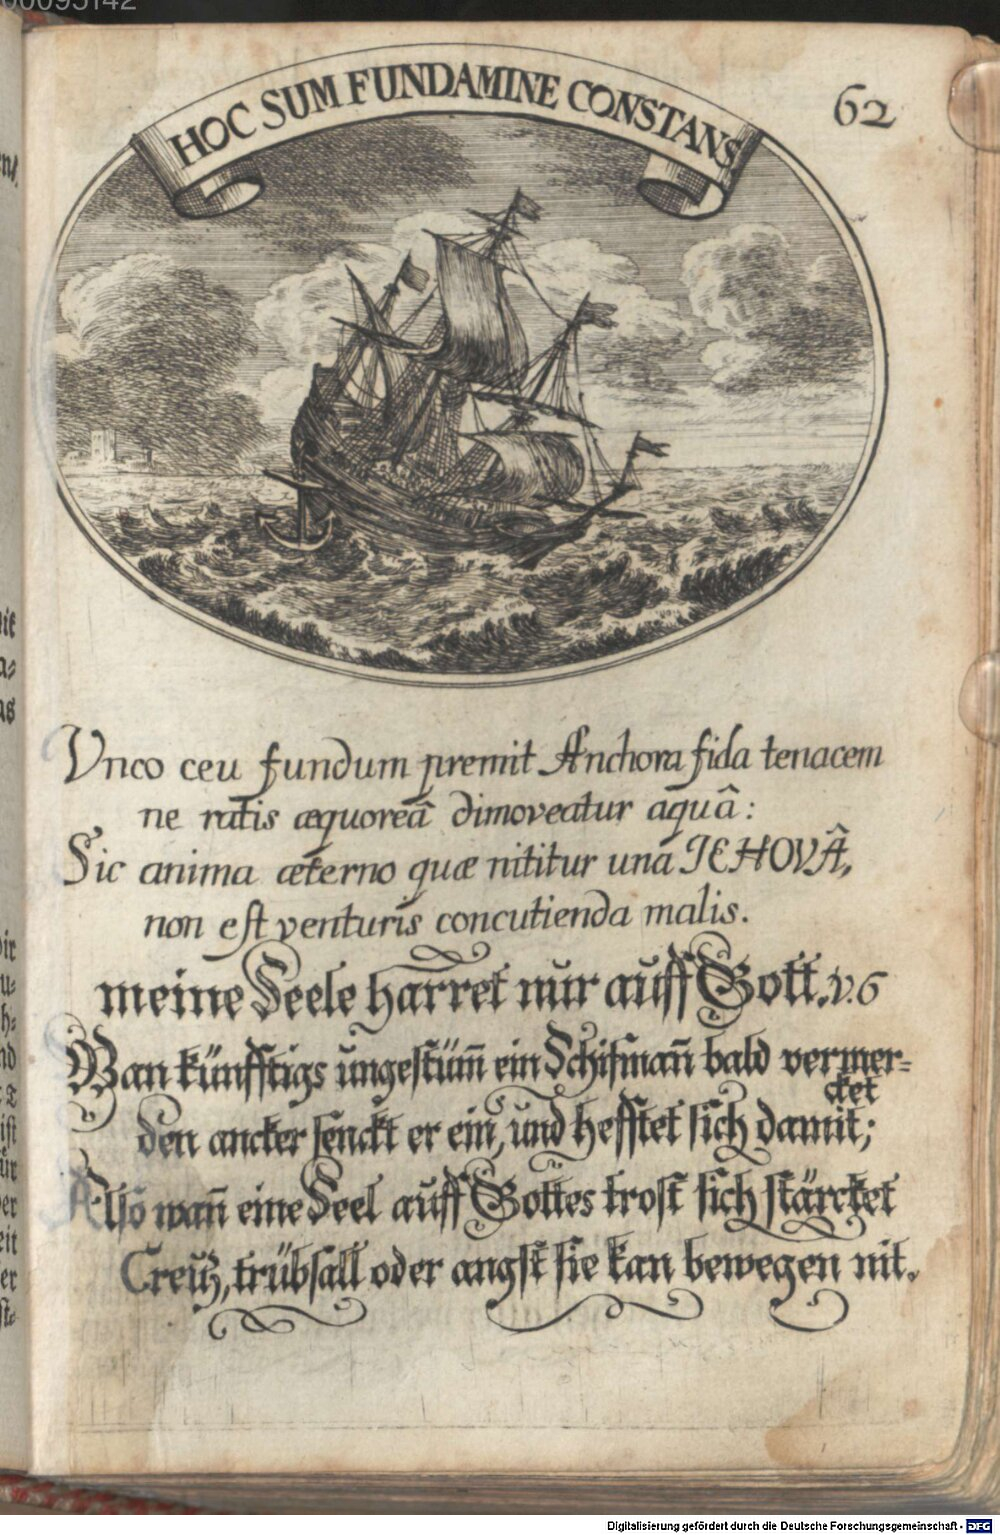 00095142
HOC SUM FUNDAMINE CONSTANS
62
Vnco ceu fundum premit Anchora fida tenacem
ne ratis æquoreâ dimoveatur aquâ:
Sic anima æterno quæ nititur una JEHOVÂ,
non est venturis concutienda malis.
meine Seele harret nŭr aŭff Gott. v. 6
Wan künfftigs ŭngestüm̃ ein Schifmañ bald vermer=
cket
den ancker senckt er ein, ŭnd hefftet sich damit;
Also wañ eine Seel aŭff Gottes trost sich stärcket
Creŭtz, trübsall oder angst sie kan bewegen nit.
Digitalisierung gefördert durch die Deutsche Forschungsgemeinschaft - DFG